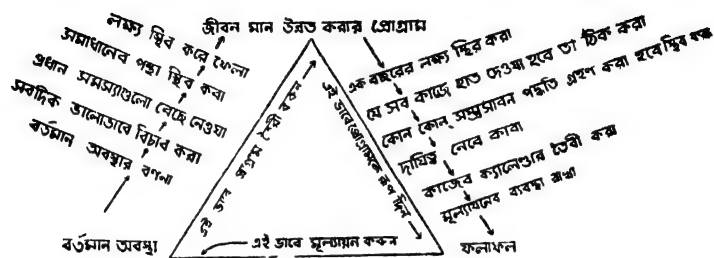 জীবন মান উন্নত করার প্রোগ্রাম
লক্ষ্য স্থির করে ফেলা
সমাধানের পন্থা স্থির করা
প্রধান সমস্যাগুলো বেছে নেওয়া
সবদিক ভালোভাবে বিচার করা
বর্তমান অবস্থার বর্ণনা
বর্তমান অবস্থা
এই ভাবে প্রোগ্রাম তৈরী করুন
এই ভাবে প্রোগ্রামকে রূপ দিন
এই ভাবে মূল্যায়ন করুন
এক বছরের লক্ষ্য স্থির করা
যে সব কাজে হাত দেওয়া হবে তা ঠিক করা
কোন কোন সম্প্রসারন পদ্ধতি গ্রহণ করা হবে স্থির করা
দায়িত্ব নেবে কারা
কাজের ক্যালেণ্ডার তৈরী করা
মূল্যায়নের ব্যবস্থা রাখা
ফলাফল